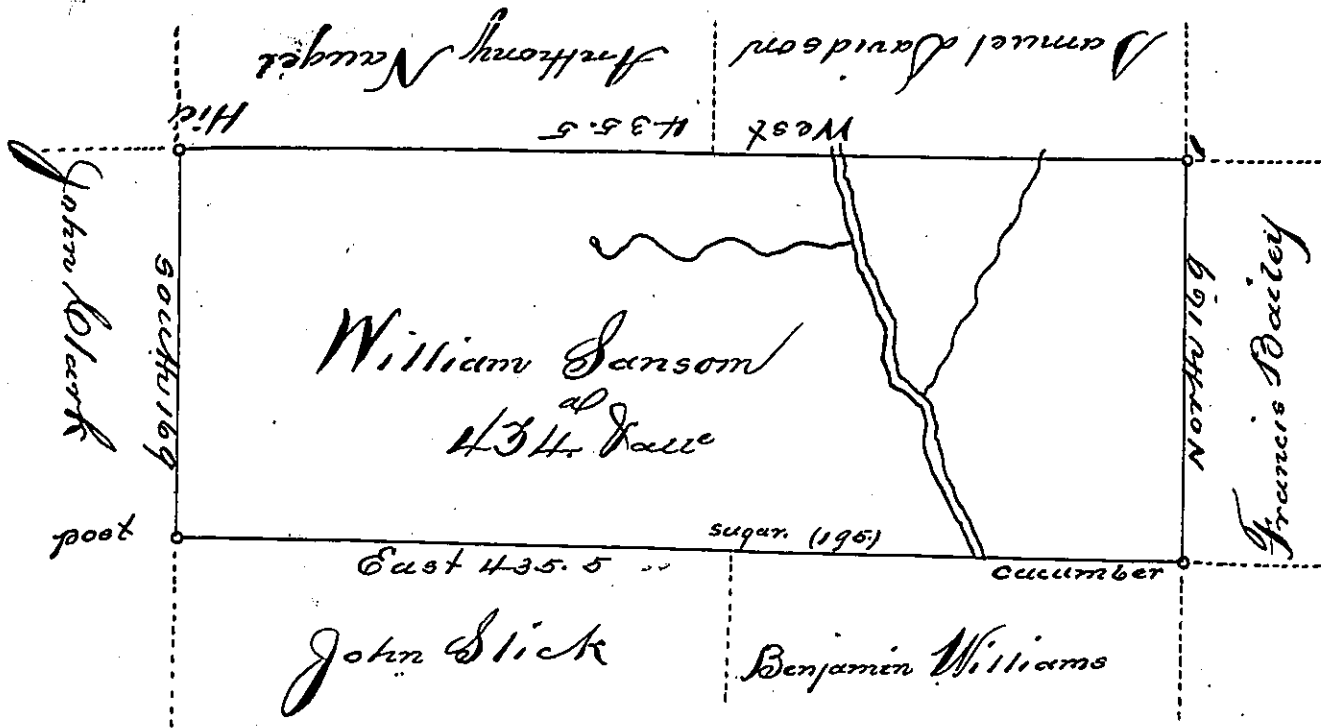 Anthony Naugel
Samuel Davidson
Hic
435.5
West
John Clark
South 169
William Sansom
434. ap allce
North 169
Francis Bailey
post
East 435.5
sugar. (195)
cucumber
John Slick
Benjamin Williams